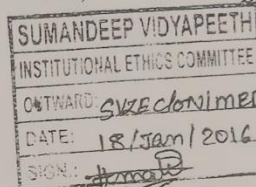 SUMANDEEP VIDYAPEETH
INSTITUTIONAL ETHICS COMMITTEE
OUTWARD:
DATE: 18/Jan/2016
SIGN.: